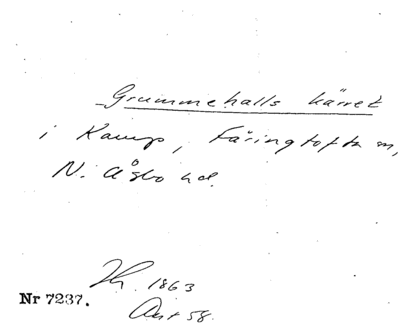 Grummehalls kärret
i Kamp, Färingtofta sn,
N. Åsbo hd.
1863
Nr 7237.
Ant 58.